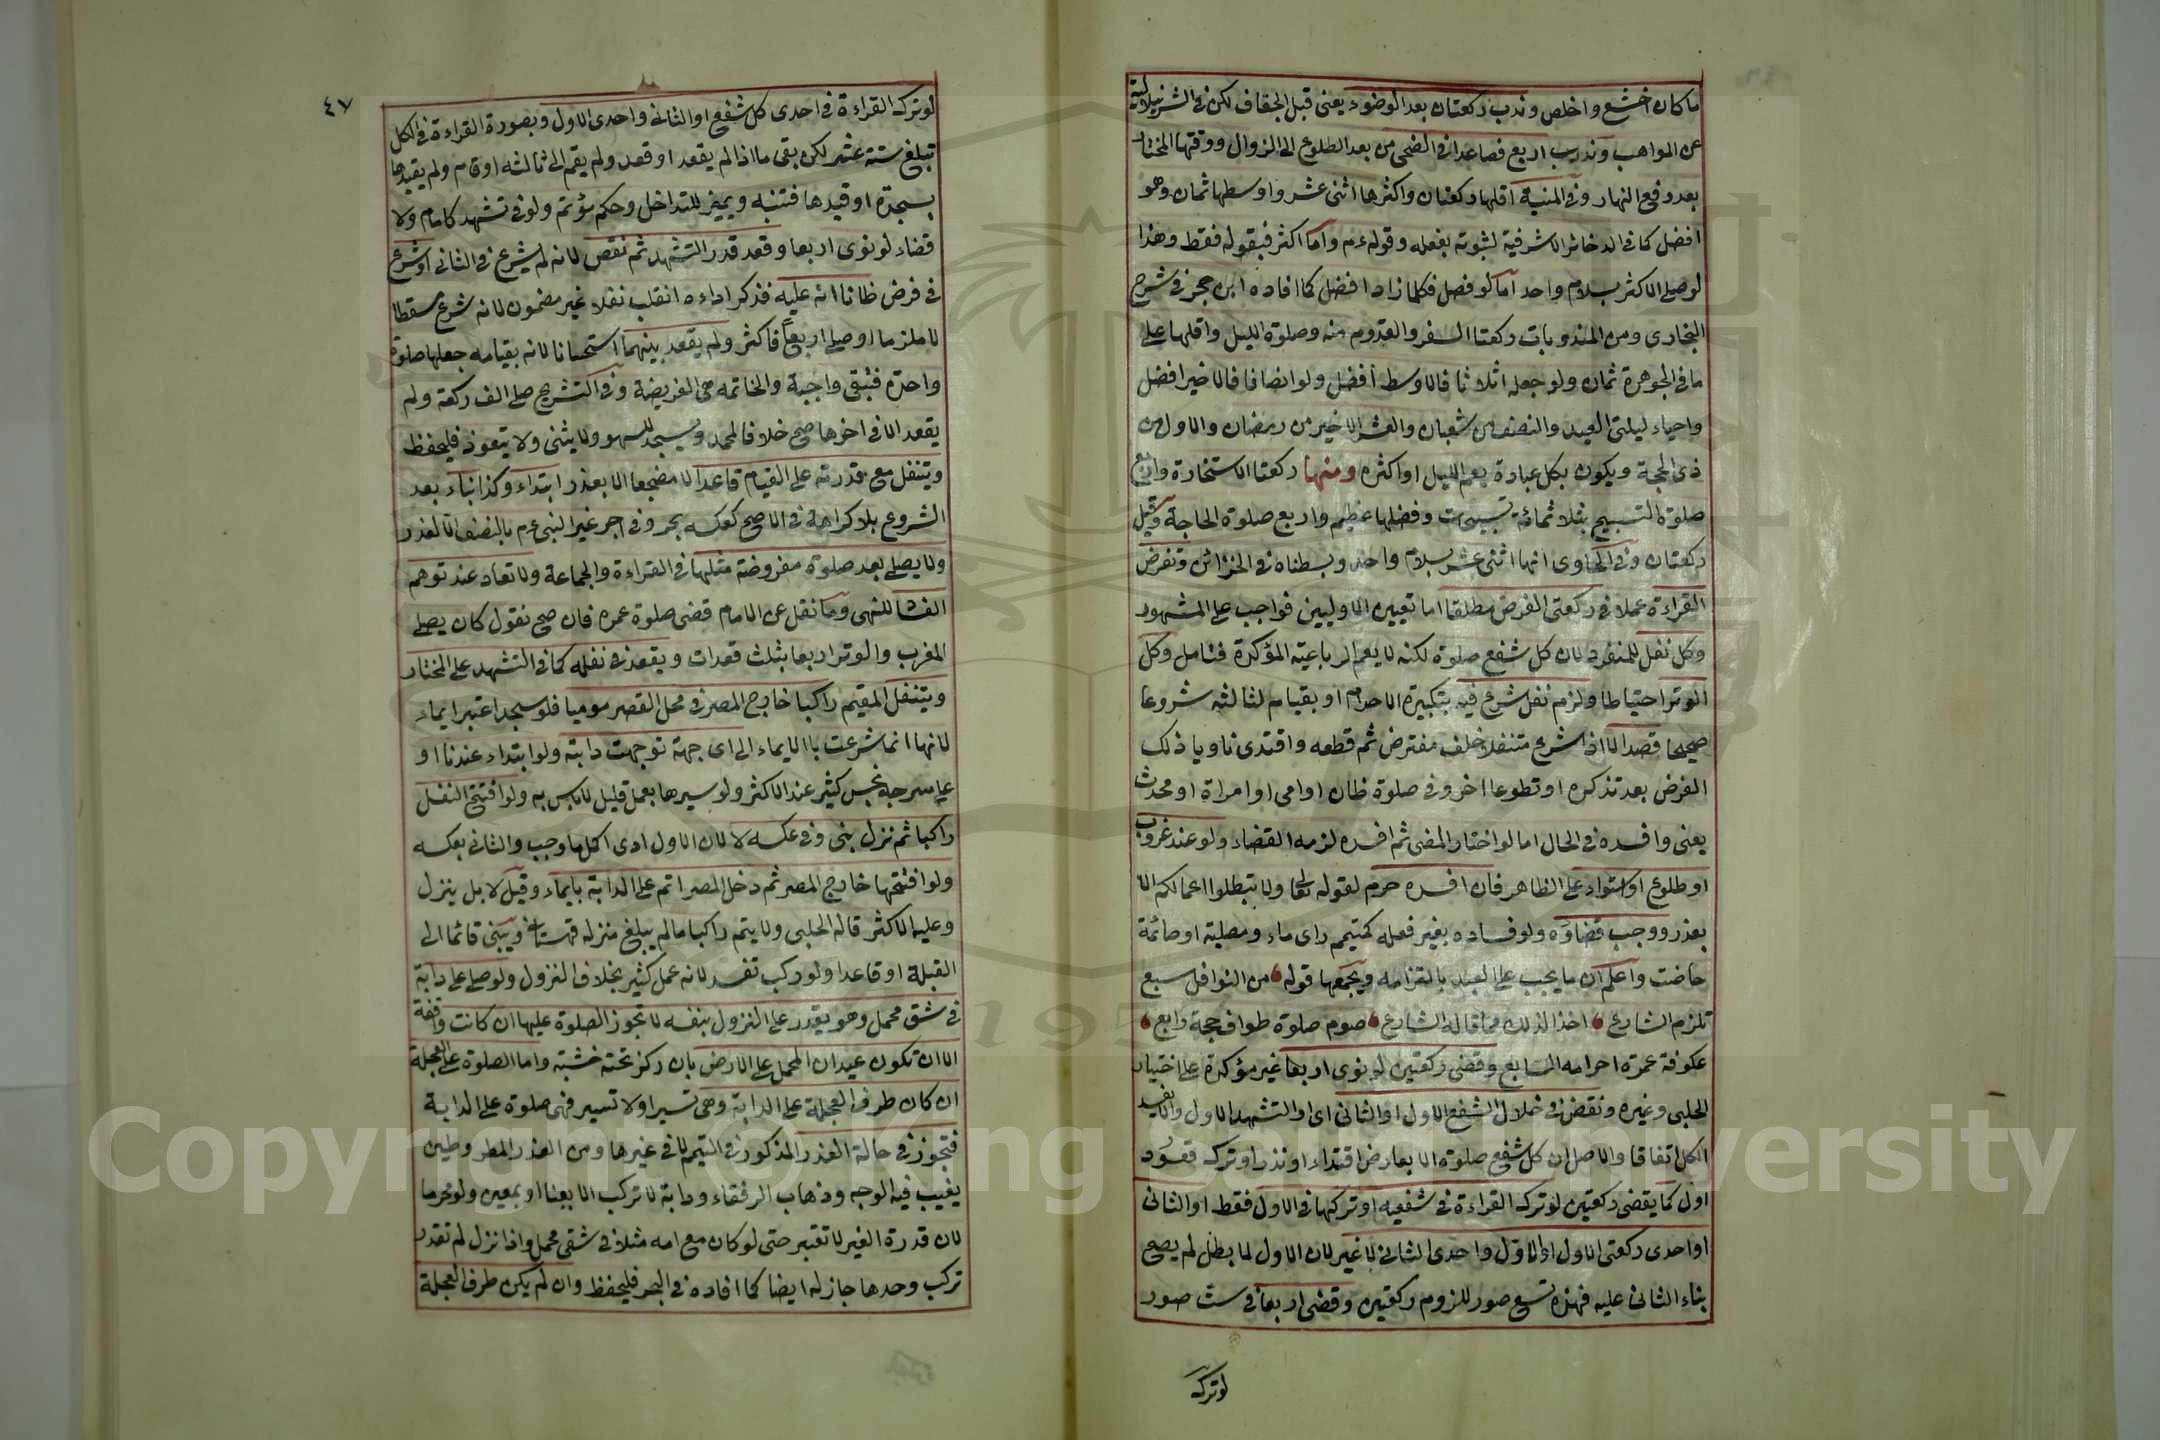 ما كان اخشع واخلص وندب ركعتان بعد الوضوء يعني قبل الجفاف لكن في الشرنبلالية
عن المواهب وندب اربع فصاعدا في الضحى من بعد الطلوع الى الزوال ووقتها المختار
بعد رفع النهار وفي المنية اقلها ركعتان واكثرها اثنى عشر واوسطها ثمان وهو
افضل كما في الذخائر الاشرفية لثبوته بفعله وقوله عم واما اكثر فبقوله فقط وهذا
لو صلى الاكثر بسلام واحد اما لو فصل فكلما زاد افضل كما افاده ابن حجر في شرح
البخاري ومن المندوبات ركعتا السفر والقدوم منه وصلوة الليل واقلها على
ما في الجوهرة ثمان ولو جعله اثلاثا فالاوسط افضل ولو انصافا فالاخير افضل
واحياء ليلتي العيد والنصف من شعبان والعشر الاخير من رمضان والاول من
ذي الحجة ويكون بكل عبادة يعم الليل او اكثره ومنها ركعتا الاستخارة واربع
صلوة التسبيح بثلاثمائة تسبيحة وفضلها عظيم واربع صلوة الحاجة وقيل
ركعتان وفي الحاوي انها اثنى عشر بسلام واحد وبسطناه في الخزائن وتفرض
القراءة عملا في ركعتي الفرض مطلقا اما تعيين الاوليين فواجب على المشهور
وكل نفل للمنفرد لان كل شفع صلوة لكنه لا يعم الرباعية المؤكدة فتامل وكل
الوتر احتياطا ولزم نفل شرع فيه بتكبيرة الاحرام او بقيام لثالثه شروعا
صحيحا قصدا الا اذا شرع متنفلا خلف مفترض ثم قطعه واقتدى ناويا ذلك
الفرض بعد تذكره او تطوعا اخر وفي صلوة ظان او امي او امراة او محدث
يعني وافسده في الحال اما لو اختار المضي ثم افسده لزمه القضاء ولو عند غروب
او طلوع او استواء على الظاهر فان افسده حرم لقوله تعالى ولا تبطلوا اعمالكم الا
بعذر ووجب قضاؤه ولو فساده بغير فعله كمتيمم راى ماء ومصلية او صائمة
حاضت واعلم ان ما يجب على العبد بالتزامه ويجمعها قوله من النوافل سبع
تلزم الشارع اخذا لذلك مما قاله الشارع صوم صلوة طواف حجة رابع
عكوفة عمرة احرامه السابع وقضى ركعتين لو نوى اربعا غير مؤكدة على اختيار
الحلبي وغيره ونقض في خلال الشفع الاول او الثاني اي او التشهد الاول والا يفسد
الكل اتفاقا والاصل ان كل شفع صلوة الا بعارض اقتداء او نذر او ترك قعود
اول كما يقضي ركعتين لو ترك القراءة في شفعيه او تركها في الاول فقط او الثاني
او احدى ركعتي الاول او الاول واحدى الثاني لا غير لان الاول لما بطل لم يصح
بناء الثاني عليه فهذه تسع صور للزوم ركعتين وقضى اربعا في ست صور
لو ترك
٤٧
لو ترك القراءة في احدى كل شفع او الثاني واحدى الاول وبصورة القراءة في الكل
تبلغ ستة عشر لكن بقى ما اذا لم يقعد او قعد ولم يقم الى ثالثه او قام ولم يقيدها
بسجدة او قيدها فتنبه ويميز للتداخل وحكم مؤتم ولو في تشهد كامام ولا
قضاء لو نوى اربعا وقعد قدر التشهد ثم نقض لانه لم يشرع في الثاني او شرع
في فرض ظانا انه عليه فذكر اداءه انقلب نفلا غير مضمون لانه شرع مسقطا
لا ملزما او صلى اربعا فاكثر ولم يقعد بينهما استحسانا لانه بقيامه جعلها صلوة
واحدة فتبقى واجبة والخاتمه هي الفريضة وفي التشريح صلى الف ركعة ولم
يقعد الا في اخرها صح خلافا لمحمد ويسجد للسهو ولا يثنى ولا يتعوذ فليحفظ
ويتنفل مع قدرته على القيام قاعدا لا مضجعا الا بعذر ابتداء وكذا بناء بعد
الشروع بلا كراهة في الاصح كعكسه بحر وفي اجر غير النبي عم بالنصف الا لعذر
ولا يصلي بعد صلوة مفروضة مثلها في القراءة والجماعة ولا تعاد عند توهم
الفسا للنهي وما نقل عن الامام قضى صلوة عمره فان صح نقول كان يصلي
المغرب والوتر اربعا بثلث قعدات ويقعد في نفله كما في التشهد على المختار
ويتنفل المقيم راكبا خارج المصر في محل القصر موميا فلو سجد اعتبر ايماء
لانها انما شرعت بالايماء الى اي جهة توجهت دابته ولو ابتداء عندنا او
على سرجه نجس كثير عند الاكثر ولو سيرها بعمل قليل لا باس به ولو افتتح النفل
راكبا ثم نزل بنى وفي عكسه لا لان الاول ادى اكمل ما وجب والثاني بعكسه
ولو افتتحها خارج المصر ثم دخل المصر اتم على الدابة بايماء وقيل لا بل ينزل
وعليه الاكثر قاله الحلبي ولا يتم راكبا ما لم يبلغ منزله قهستاني ويبني قائما الى
القبلة او قاعدا ولو ركب تفسد لانه عمل كثير بخلاف النزول ولو صلى على دابة
في شق محمل وهو يقدر على النزول بنفسه لا تجوز الصلوة عليها ان كانت واقفة
الا ان تكون عيدان المحمل على الارض بان ركز تحته خشبة واما الصلوة على العجلة
ان كان طرف العجلة على الدابة وهي تسير او لا تسير فهي صلوة على الدابة
فتجوز في حالة العذر المذكور في التيمم لا في غيرها ومن العذر المطر وطين
يغيب فيه الوجه وذهاب الرفقاء ودابة لا تركب الا بعناء او بمعين ولو محرما
لان قدرة الغير لا تعتبر حتى لو كان مع امه مثلا في شقى محمل واذا نزل لم تقدر
تركب وحدها جاز له ايضا كما افاده في البحر فليحفظ وان لم يكن طرف العجلة
Copyright © King Saud University